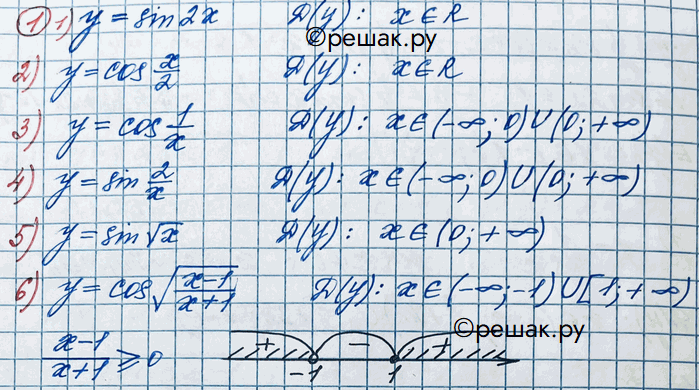 ① 1) y = sin 2x D(y): x ∈ R
©решак.ру
2) y = cos x/2 D(y): x ∈ R
3) y = cos 1/x D(y): x ∈ (-∞; 0) ∪ (0; +∞)
4) y = sin 2/x D(y): x ∈ (-∞; 0) ∪ (0; +∞)
5) y = sin √x D(y): x ∈ (0; +∞)
6) y = cos √((x-1)/(x+1)) D(y): x ∈ (-∞; -1) ∪ [1; +∞)
©решак.ру
(x-1)/(x+1) ⩾ 0 + − +
-1 1